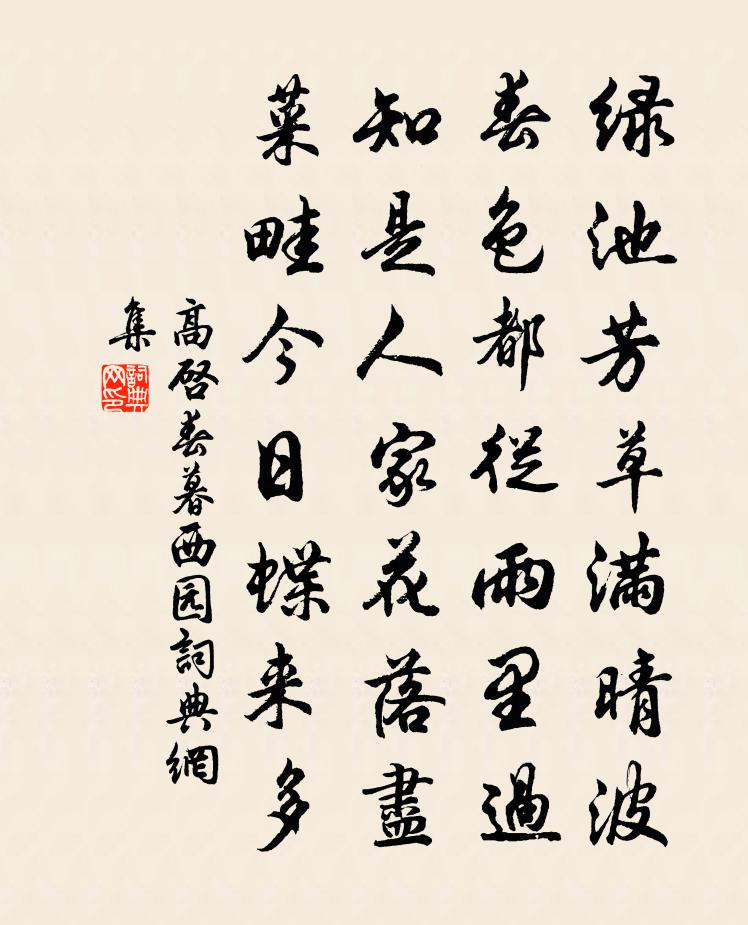 绿池芳草满晴波
春色都從雨里過
知是人家花落盡
菜畦今日蝶来多
高啓春暮西园詞典網
集
詞典
网印